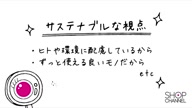 サステナブルな視点
・ヒトや環境に配慮しているから
・ずっと使える良いモノだから
etc
SHOP
CHANNEL